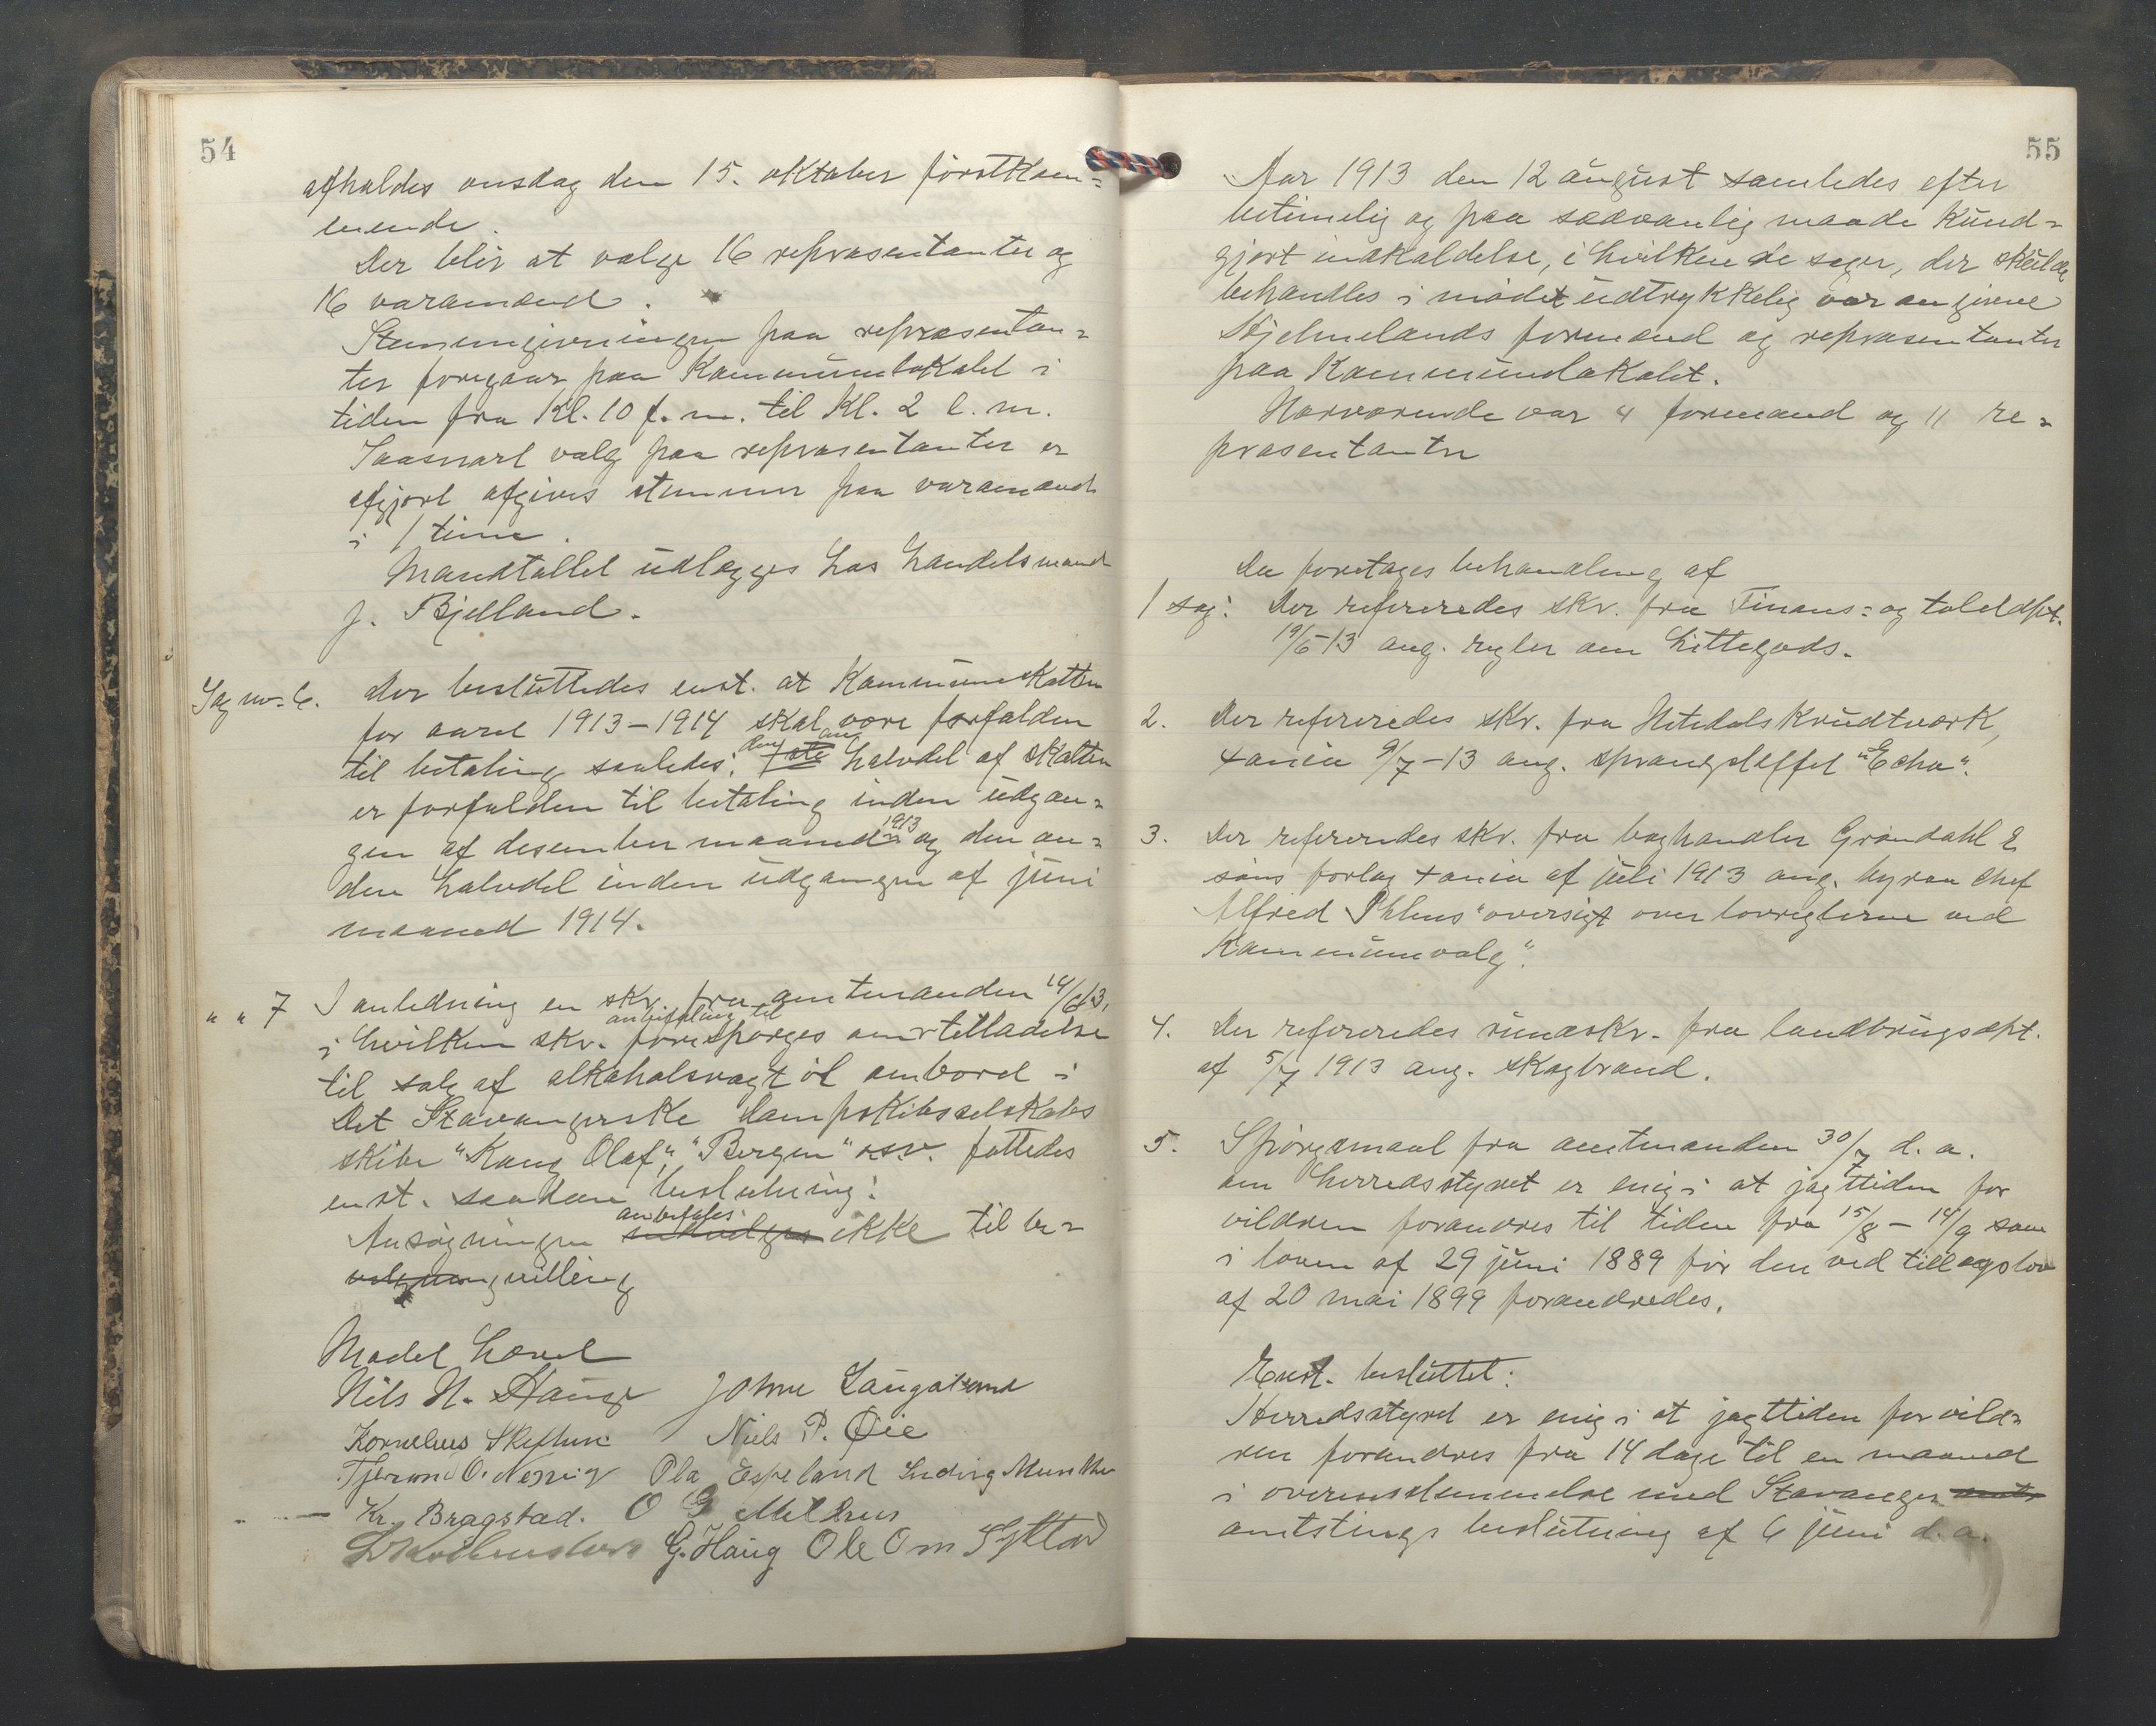 54
afholdes onsdag den 15. oktober førstkom=
mende.
Der blir at vælge 16 repræsentanter og
16 varamænd.
Stemmegivningen paa repræsentan=
ter foregaar paa kommunelokalet i
tiden fra kl. 10 f. m. til kl. 2 e. m.
Saasnart valg paa repræsentanter er
afgjort afgives stemmer paa varamænd
i 1 time.
Mandtallet udlægges hos handelsmand
J. Bjelland.
Sag nr. 6. Der besluttedes enst. at kommuneskatten
for aaret 1913–1914 skal være forfalden
til betaling saaledes: den halvdel af skatten
er forfalden til betaling inden udgan=
gen af desember maaned 1913 og den an=
den halvdel inden udgangen af juni
maaned 1914.
" " 7 I anledning en skr. fra amtmanden
i hvilken skr. forespørges om anbefaling til tilladelse
til salg af alkoholsvagt øl ombord i
Det Stavangerske Dampskibsselskabs
skibe "Kong Olaf", "Bergen" osv. fattedes
enst. saadan beslutning:
Ansøgningen anbefales ikke til be=
villing
Mødet hævet
Nils N. Hauge John Laugaland
Kornelius Skiftun Niels P. Øie
O. Nessig Ola Espeland Ludvig Munthe
Kr. Bragstad. O G Melhus
G. Haug Ole Om
55
Aar 1913 den 12 august samledes efter
betimelig og paa sædvanlig maade kund=
gjort indkaldelse, i hvilken de sager, der skulde
behandles i mødet udtrykkelig var angivne
Hjelmelands formænd og repræsentanter
paa kommunelokalet.
Nærværende var 4 formænd og 11 re=
præsentanter
Da foretages behandling af
1 sag: Der refereredes skr. fra Finans= og tolddpt.
19/6–13 ang. regler om hittegods.
2. Der refereredes skr. fra Nitedals krudtværk,
+ania 9/7–13 ang. sprængstoffet "Echo".
3. Der refereredes skr. fra boghandler Grøndahl &
søns forlag +ania af juli 1913 ang. byraachef
Alfred Ihlens "oversigt over lovreglerne ved
kommunevalg".
4. Der refereredes rundskr. fra landbrugsdept.
af 5/7 1913 ang. skogbrand.
5. Spørgsmaal fra amtmanden 30/7 d. a.
om herredsstyret er enig i at jagttiden for
vildren forandres til tiden fra 15/8 – 14/9 som
i loven af 29 juni 1889 før den ved tillægslov
af 20 mai 1899 forandredes.
Enst. besluttet:
Herredsstyret er enig i at jagttiden for vild=
ren forandres fra 14 dage til en maaned
i overensstemmelse med Stavanger amts
amtstings beslutning af 6 juni d. a.